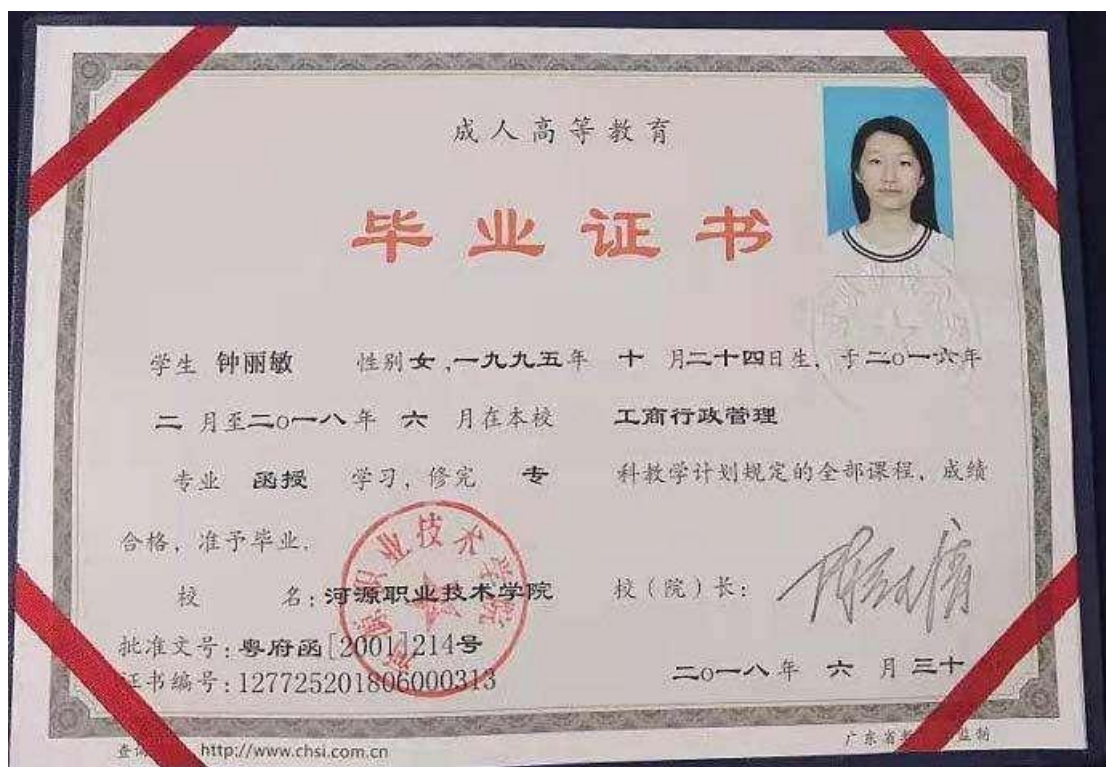 成人高等教育
毕业证书
学生 钟丽敏 性别女,一九九五年 十 月二十四日生,于二〇一六年
二 月至二〇一八年 六 月在本校 工商行政管理
专业 函授 学习,修完 专 科教学计划规定的全部课程,成绩
合格,准予毕业.
校 名:河源职业技术学院 校(院)长:
批准文号:粤府函[2001]214号
证书编号:127725201806000313 二〇一八年 六 月三十
查 http://www.chsi.com.cn 广东省 监制